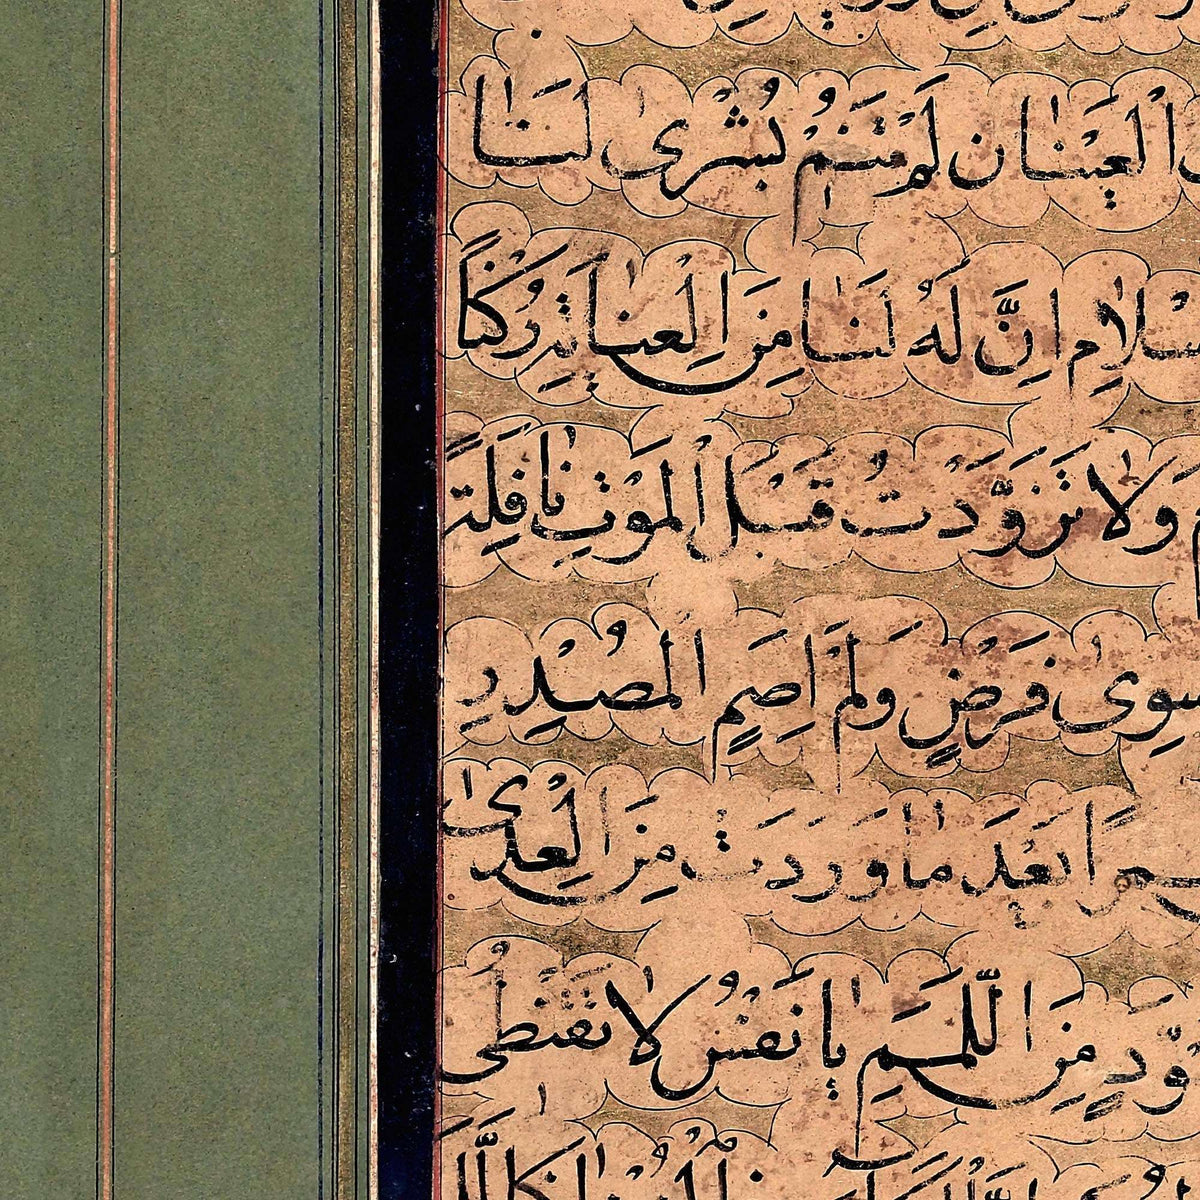 الْعَيْنَانِ لَمْ تَنَمِ بُشْرٰى لَنَا
سْلَامِ اِنَّ لَهُ لَنَا مِنَ الْعِنَايَةِ رُكْنًا
وَلَا تَزَوَّدْتُ قَبْلَ الْمَوْتِ نَافِلَةً
سِوٰى فَرْضٍ وَلَمْ اَصُمِ الْمُصْدِرِ
مرًا بَعْدَ مَا وَرَدَتْ مِنَ الْعِدٰى
وَدٍّ مِنَ اللَّمَمِ يَا نَفْسُ لَا تَقْنَطِى